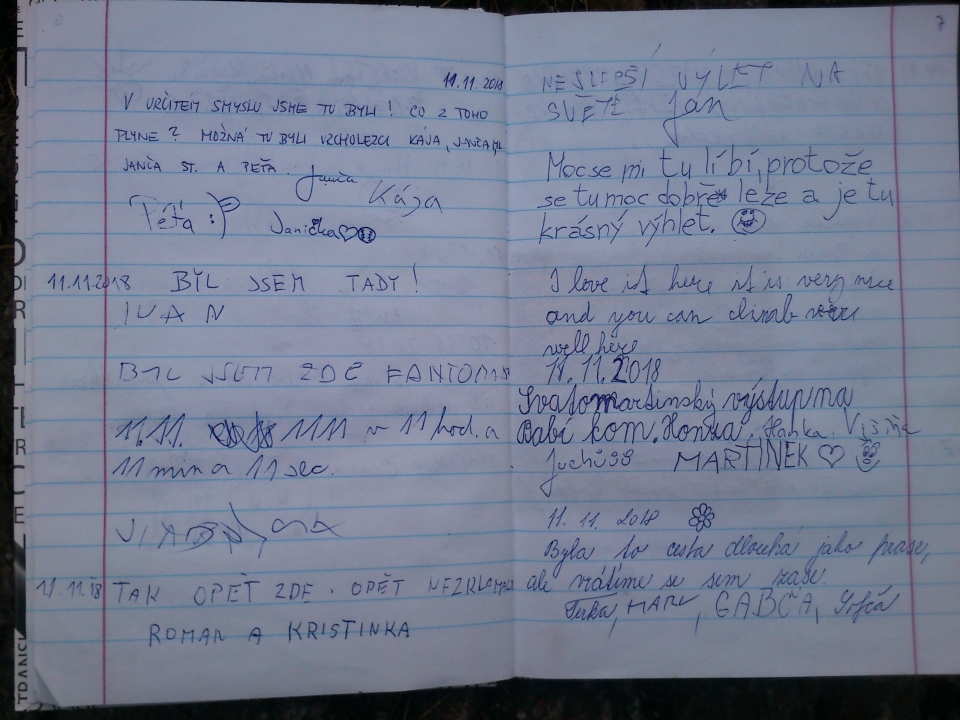 11.11.2018
V URČITÉM SMYSLU JSME TU BYLI! CO Z TOHO
PLYNE? MOŽNÁ TU BYLI VZCHOLEZCI KÁJA, JANČA ML.
JANČA ST. A PÉŤA. Janča
Kája
Péťa :) Janička
11.11.2018 BYL JSEM TADY!
IVAN
BYL JSEM ZDE FANTOMAS
11.11. 1111 v 11 hod. a
11 min a 11 sec.
11.11.18 TAK OPĚT ZDE. OPĚT NEZKLAMALO
ROMAN A KRISTINKA
7
NEJLEPŠÍ VÝLET NA
SVĚTĚ Ján
Mocse mi tu líbí, protože
se tu moc dobře leze a je tu
krásný výhlet.
I love it here it is very nice
and you can climb
well here
11.11.2018
Svatomartinský výstup na
Babí lom. Honza, Hanka, Višňa
Juchůss MARTÍNEK
11.11.2018
Byla to cesta dlouhá jako prase,
ale vrátíme se sem zase.
GABČA,